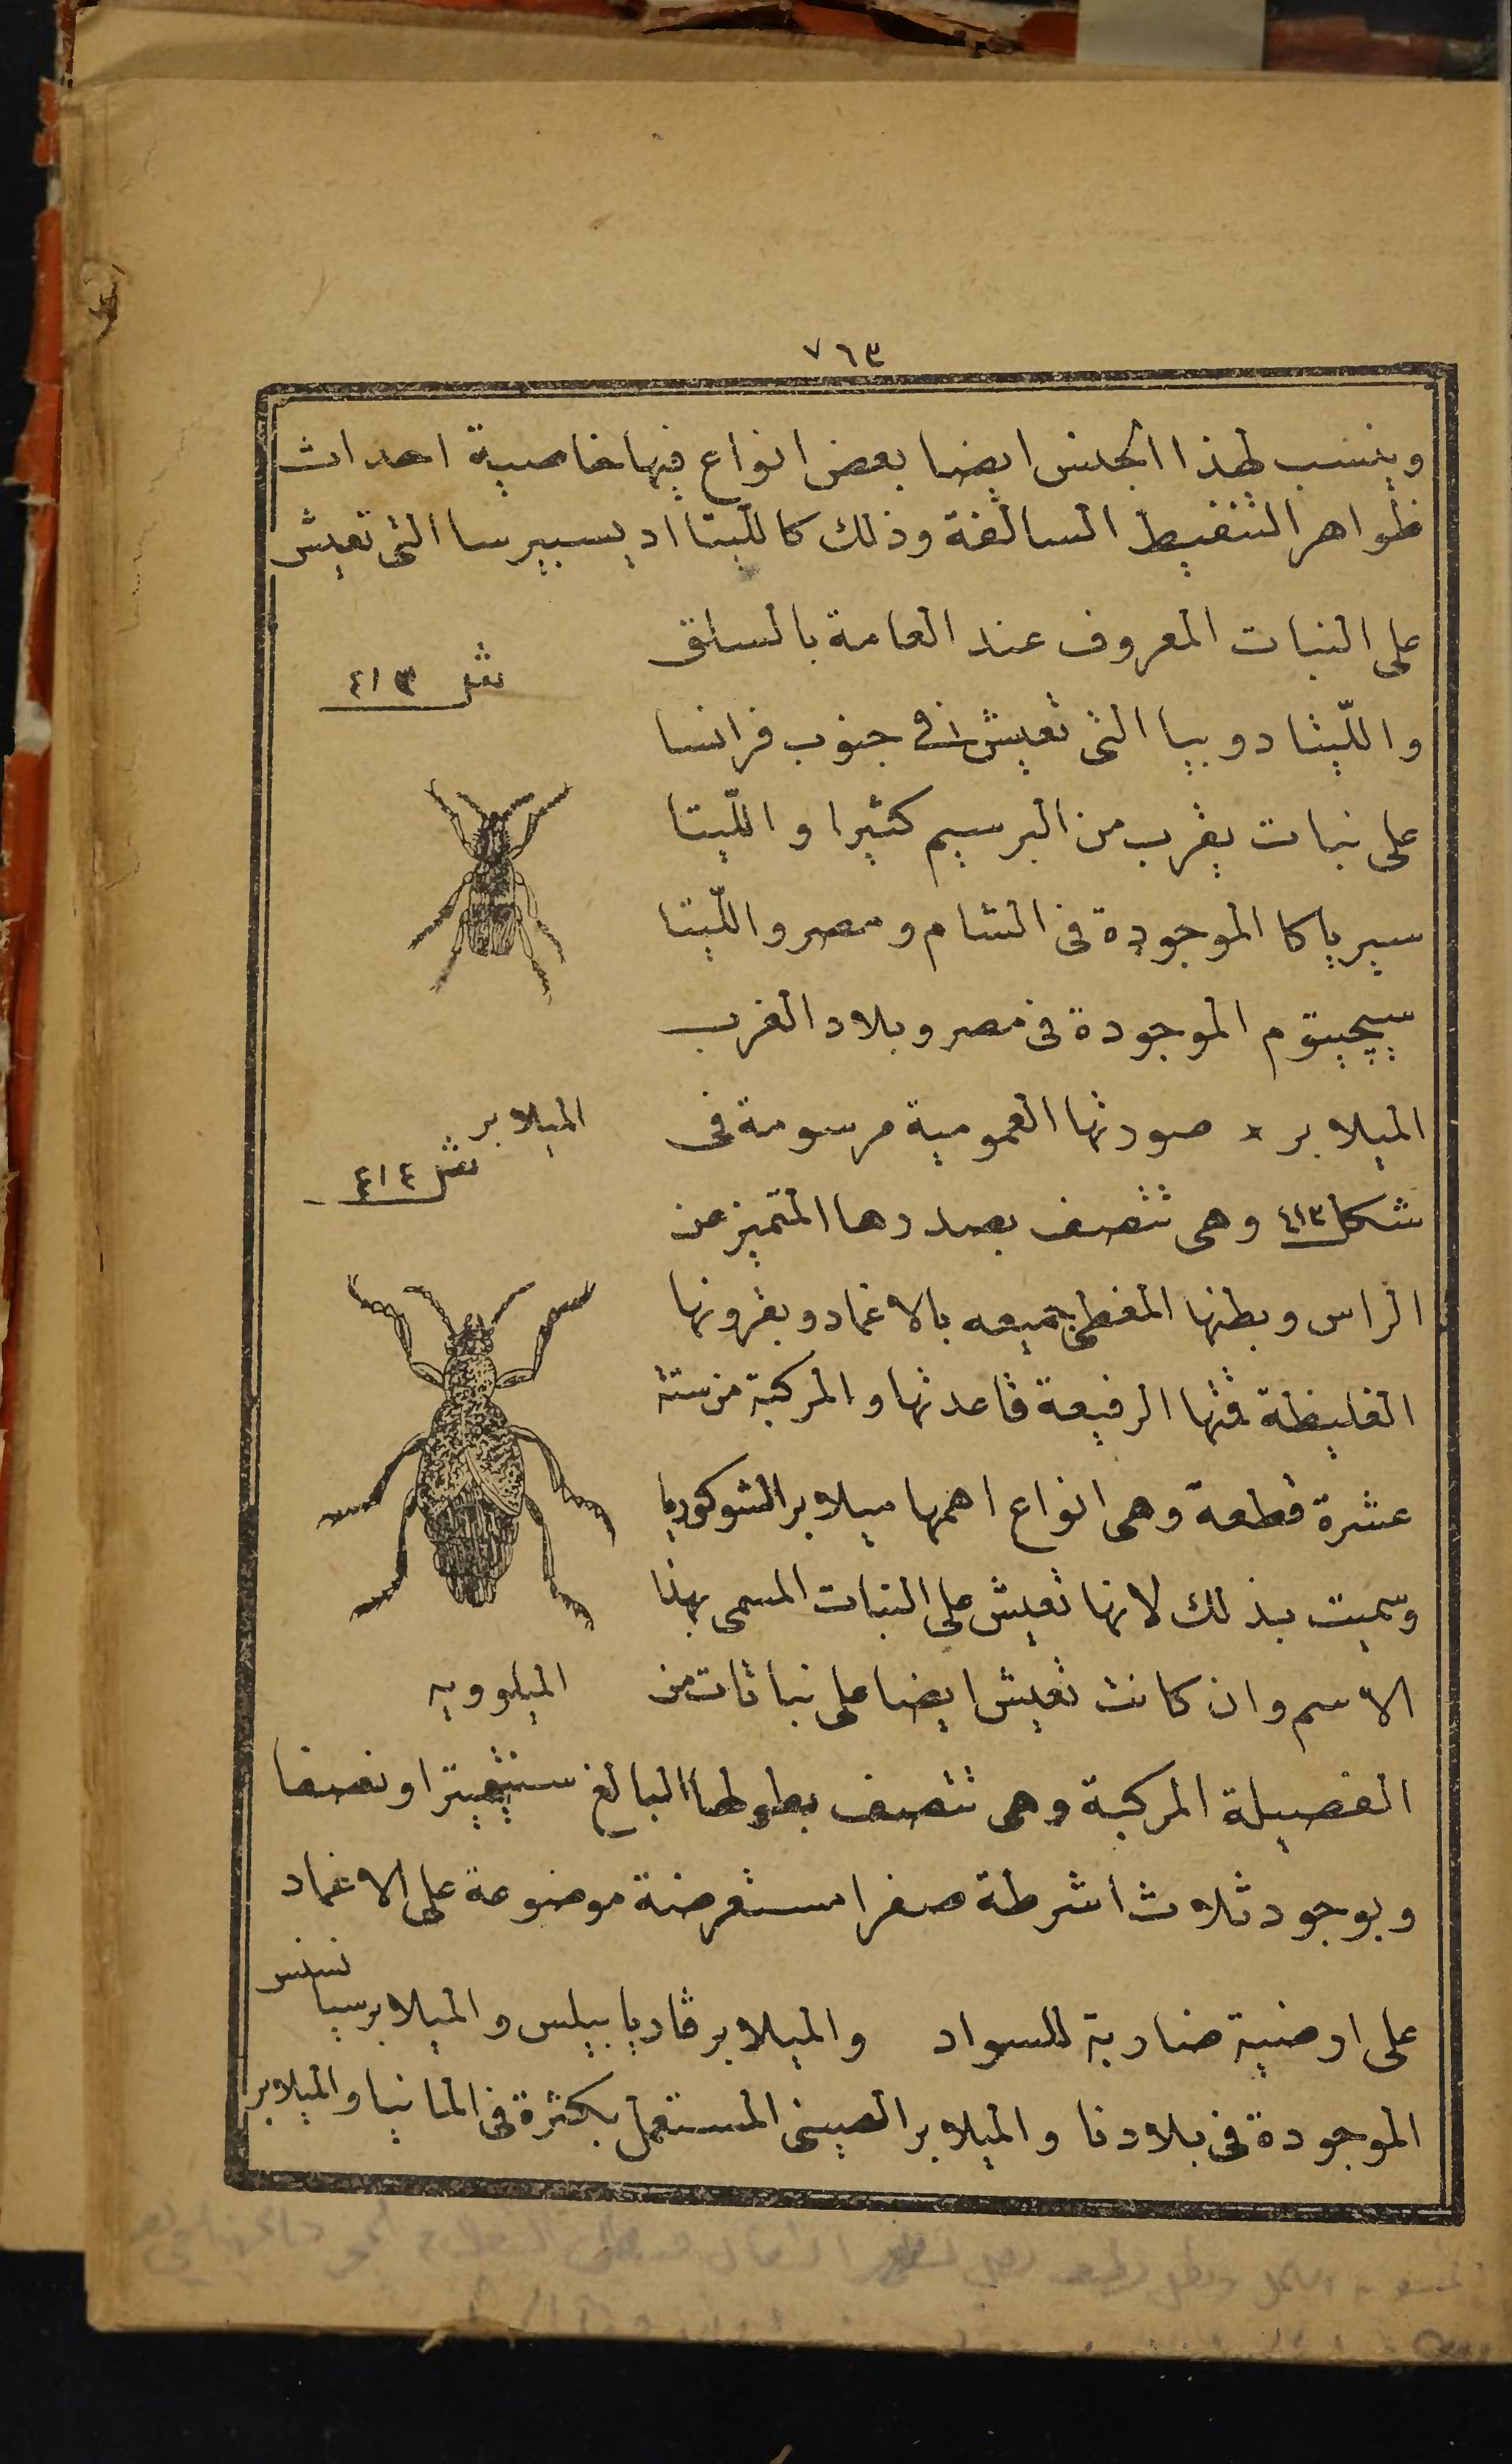 ٧٦٣
وينسب لهذا الجنس ايضا بعض انواع فيها خاصية احداث
ظواهر التنفيط السالفة وذلك كالليتا اديسبيرسا التى تعيش
على النبات المعروف عند العامة بالسلق
شكل ٤١٣
والليتا دوبيا التى تعيش فى جنوب فرانسا
على نبات يقرب من البرسيم كثيرا والليتا
سيرياكا الموجودة فى الشام ومصر والليتا
سيجيپتوم الموجودة فى مصر وبلاد الغرب
الميلابر × صورتها العمومية مرسومة فى
الميلابر
شكل ٤١٤
شكل ٤١٣ وهى تتصف بصدرها المتميز عن
الراس وبطنها المغطى جميعه بالاغماد وبقرونها
الغليظة قمتها الرفيعة قاعدتها والمركبة من ستة
عشرة قطعة وهى انواع اهمها ميلابر الشوكوريا
وسميت بذلك لانها تعيش على النبات المسمى بهذا
الاسم وان كانت تعيش ايضا على نباتات من
الميلوويه
الفصيلة المركبة وهى تتصف بطولها البالغ سنتيميترا ونصفا
وبوجود ثلاث اشرطة صفرا مستعرضة موضوعة على الاغماد
على ارضية ضاربة للسواد والميلابر قاديابيلس والميلابر سيا
نسنس
الموجودة فى بلادنا والميلابر الصينى المستعمل بكثرة فى المانيا والميلابر